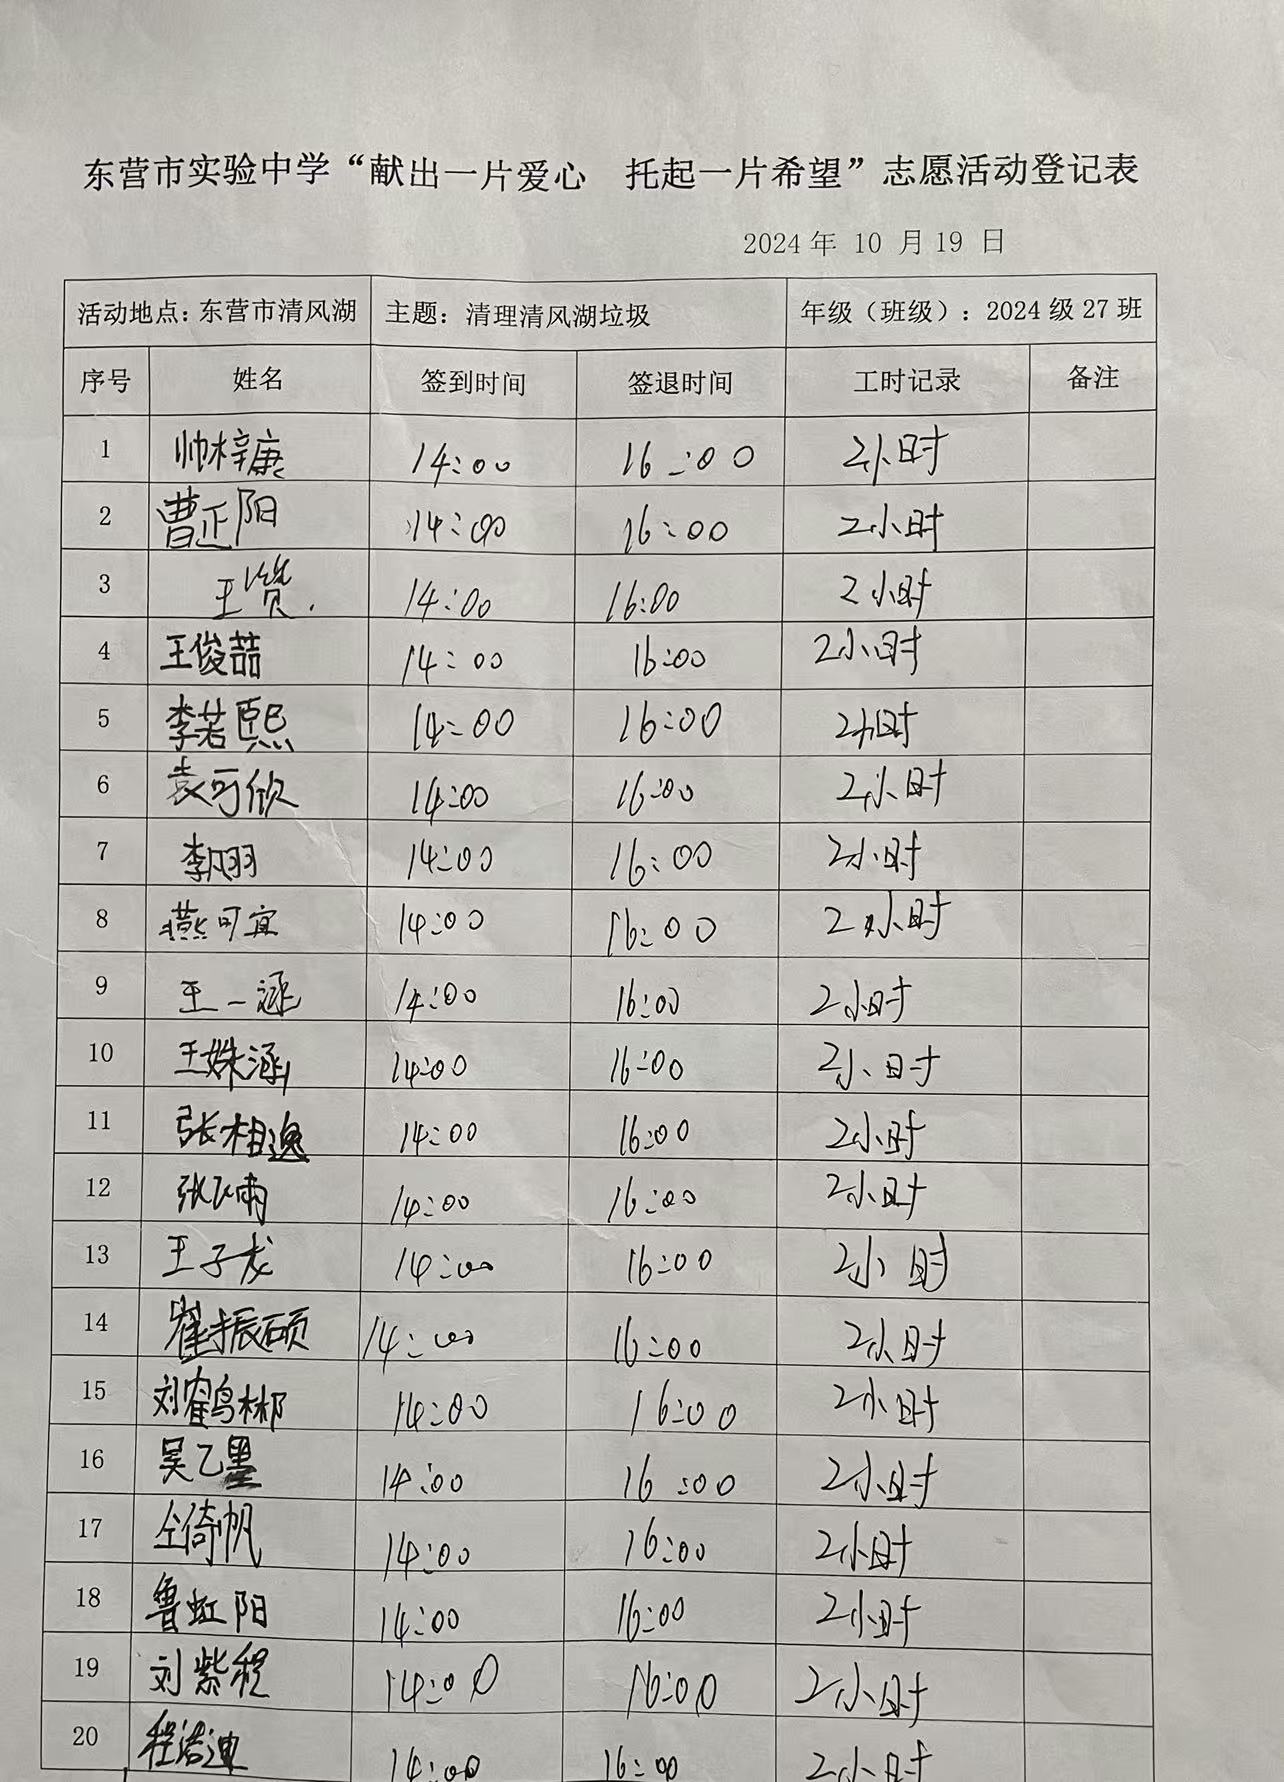 东营市实验中学“献出一片爱心 托起一片希望”志愿活动登记表
2024年 10 月19 日
活动地点：东营市清风湖 主题：清理清风湖垃圾 年级（班级）：2024级27班
序号 姓名 签到时间 签退时间 工时记录 备注
1 帅梓康 14:00 16:00 2小时
2 曹正阳 14:00 16:00 2小时
3 王赞 14:00 16:00 2小时
4 王俊喆 14:00 16:00 2小时
5 李若熙 14:00 16:00 2小时
6 袁可欣 14:00 16:00 2小时
7 李翊羽 14:00 16:00 2小时
8 燕可宜 14:00 16:00 2小时
9 王一涵 14:00 16:00 2小时
10 王姝涵 14:00 16:00 2小时
11 张相逸 14:00 16:00 2小时
12 张飞雨 14:00 16:00 2小时
13 王子龙 14:00 16:00 2小时
14 崔振硕 14:00 16:00 2小时
15 刘鹤彬 14:00 16:00 2小时
16 吴乙墨 14:00 16:00 2小时
17 仝倚帆 14:00 16:00 2小时
18 鲁虹阳 14:00 16:00 2小时
19 刘紫程 14:00 16:00 2小时
20 程浩迪 14:00 16:00 2小时